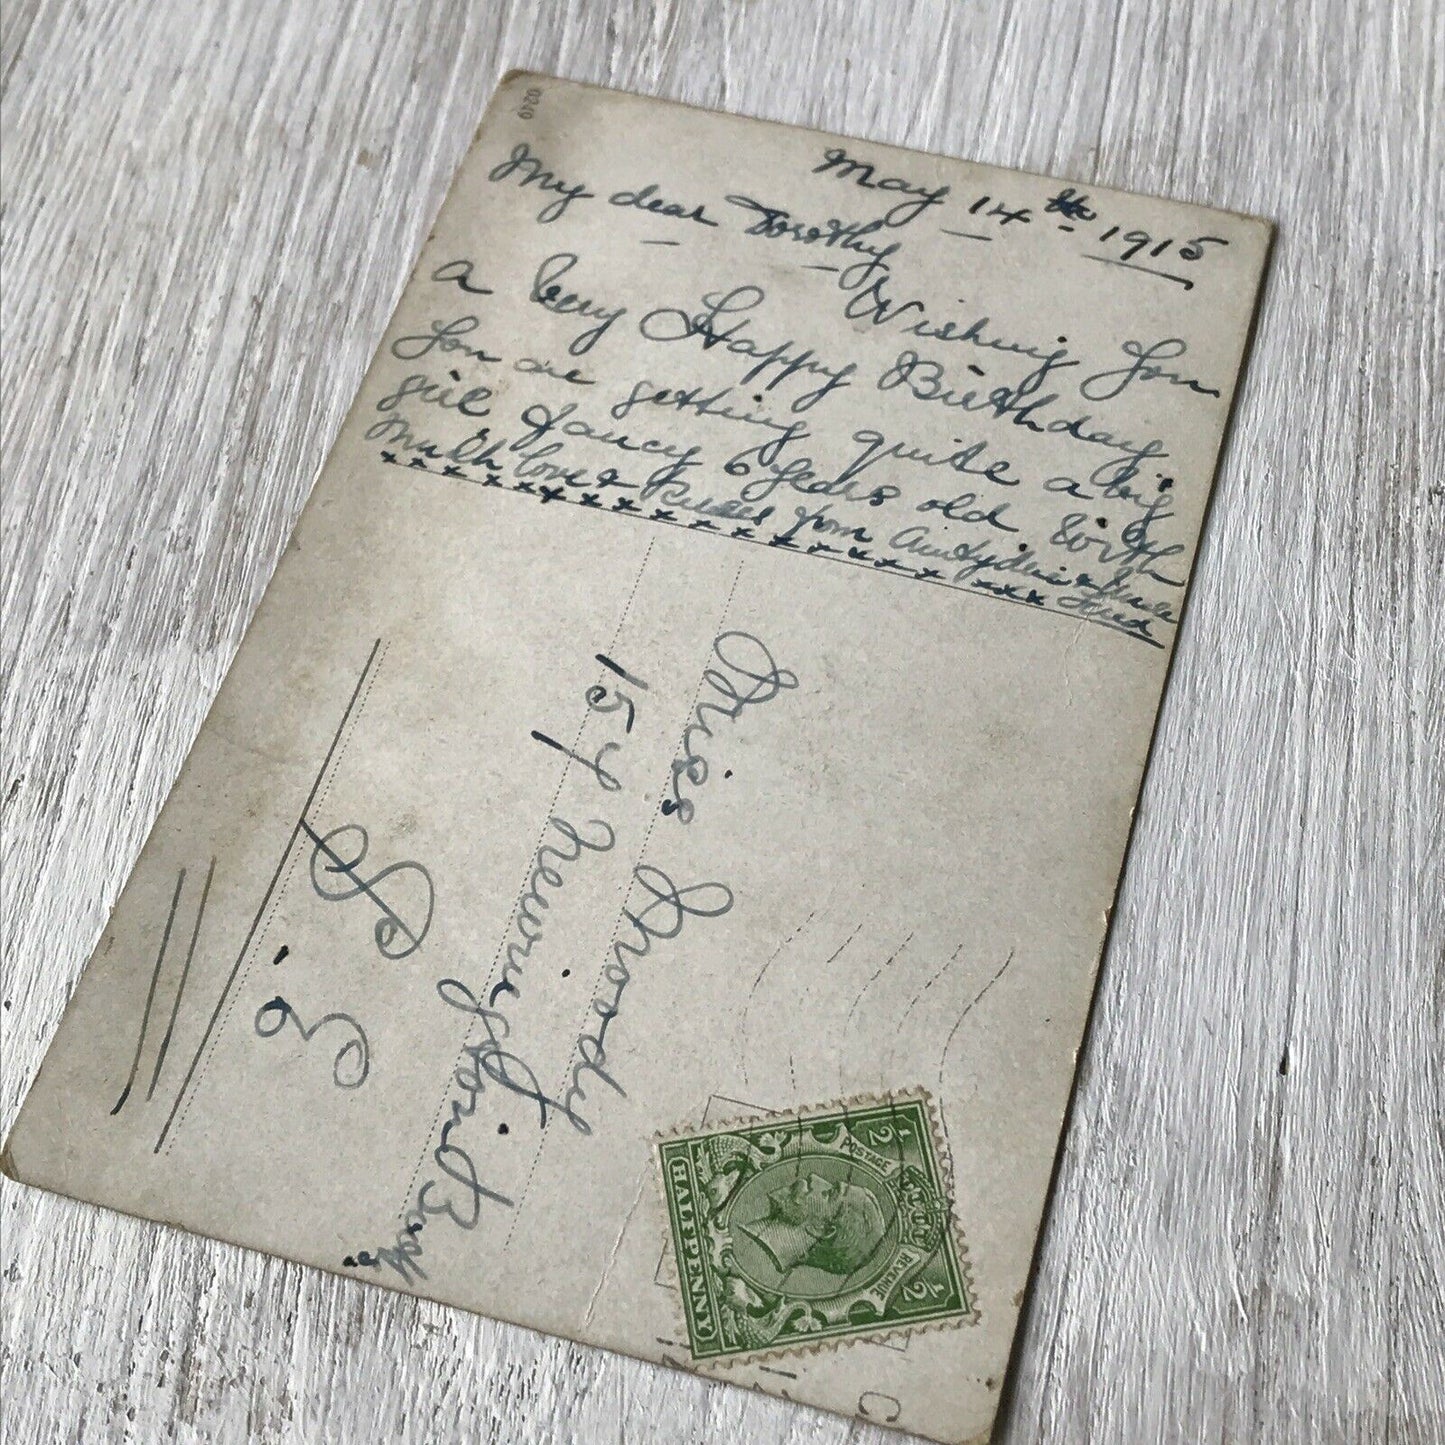 0249
May 14th 1915
My dear Dorothy
Wishing You
a Very Happy Birthday
You are getting quite a big
girl fancy 6 years old. With
Much love & Kisses from Aunty & Uncle
Fred
x x x x x x x x x x x x x x x x x x
Miss Moody
154 Newington Butts
S. E.
POSTAGE
REVENUE
1/2
1/2
HALFPENNY